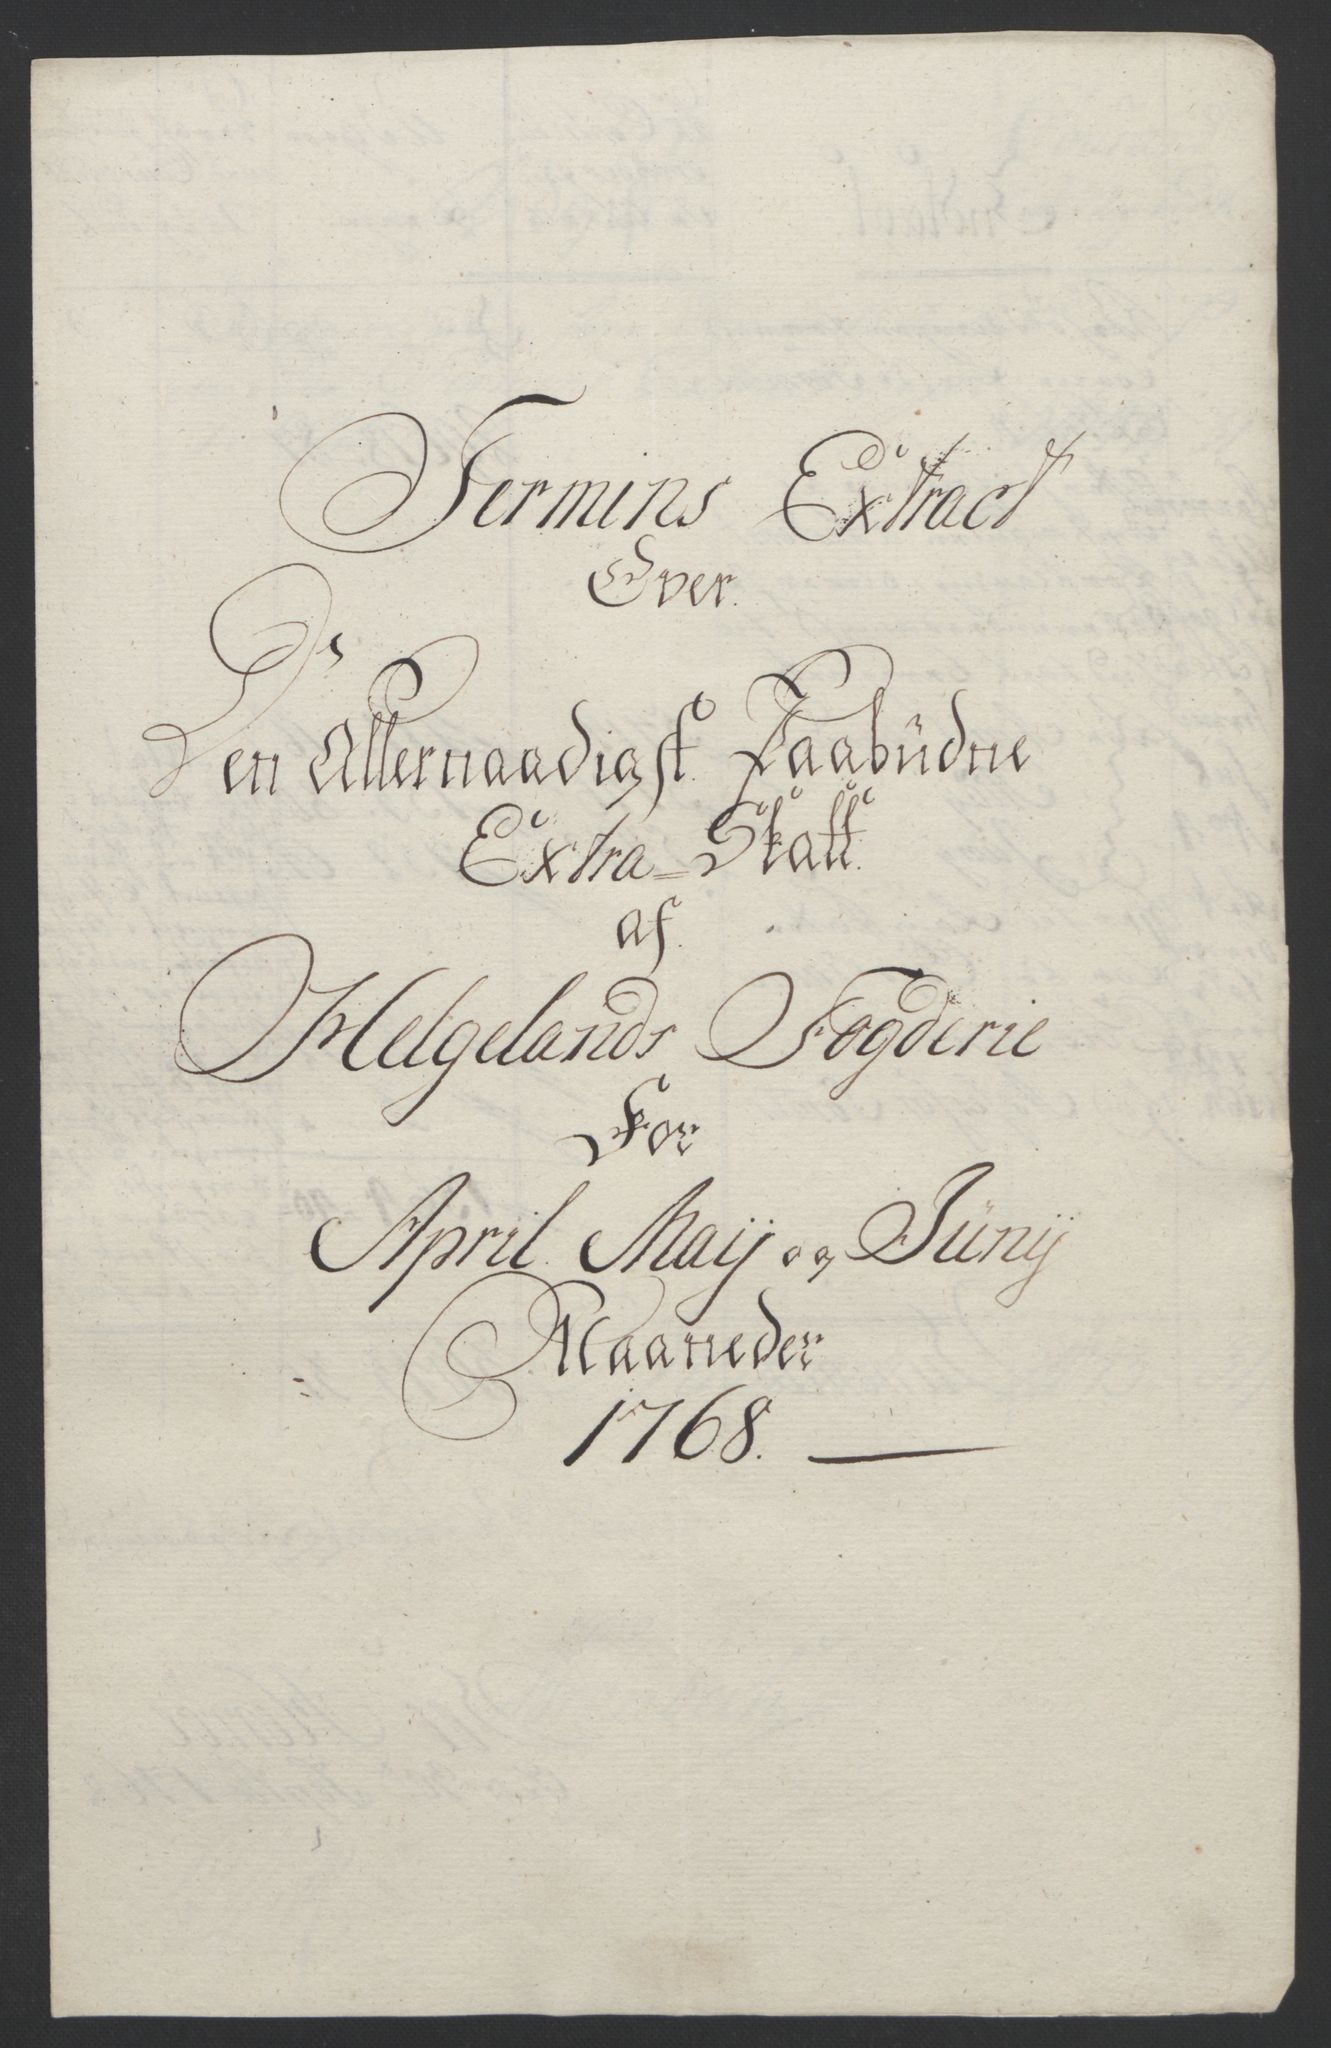 Termins Extract
Over.
Den Allernaadigst Paabüdne
Extra=Skatt.
af.
Helgelands Fogderie
For
April. Maij og Jünij
Maaneder
1768.